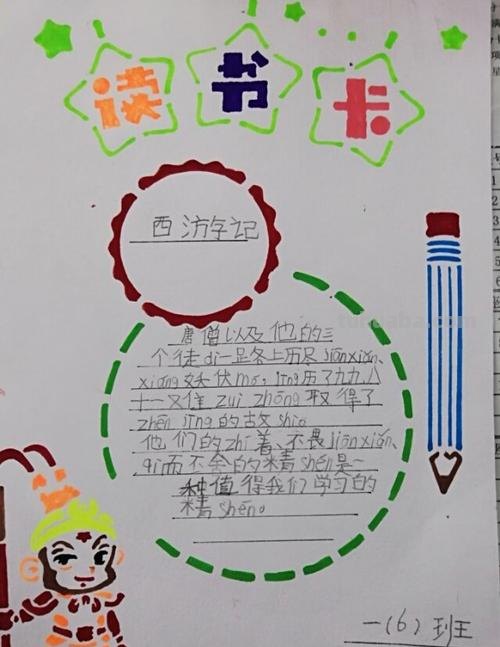 读书卡
西游字记
唐僧以及他的三
个徒di一足各上历尽jiānxiǎn、
xiáng妖伏mó，jīng历了九九八
十一又住zuì zhōng取得了
zhēn jīng的故shio
他们的zhí着、不畏jiānxiǎn、
qi而不舍的精shén是一
种值得我们学习的
精shéno
一（6）班王
tuhuaba.com